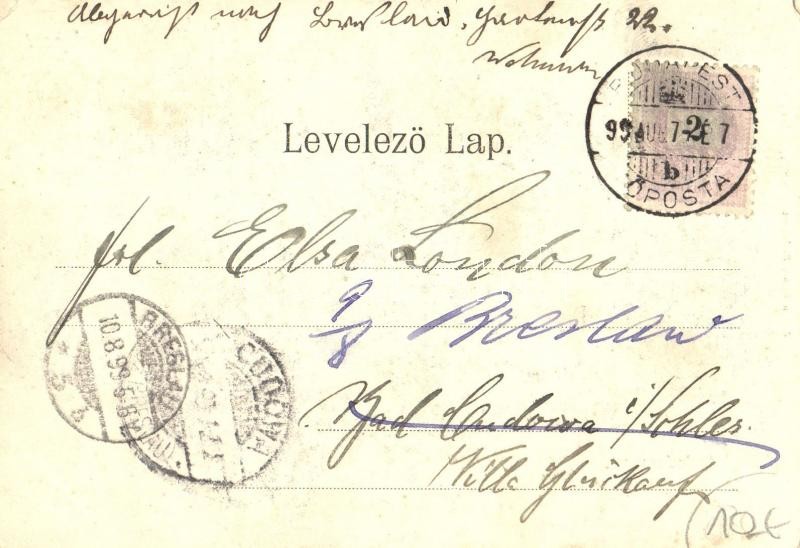 Abgereist nach Breslau, Gartenstr 22.
BUDAPEST
99 AUG. 7
2
É 7
b
FŐPOSTA
Levelező Lap.
frl. Elsa London
9/8 Breslau
Bad Cudowa i/Schles.
Villa Glückauf
BRESLAU
10.8.99.5-6
* 5 b
CUDOWA
10 €